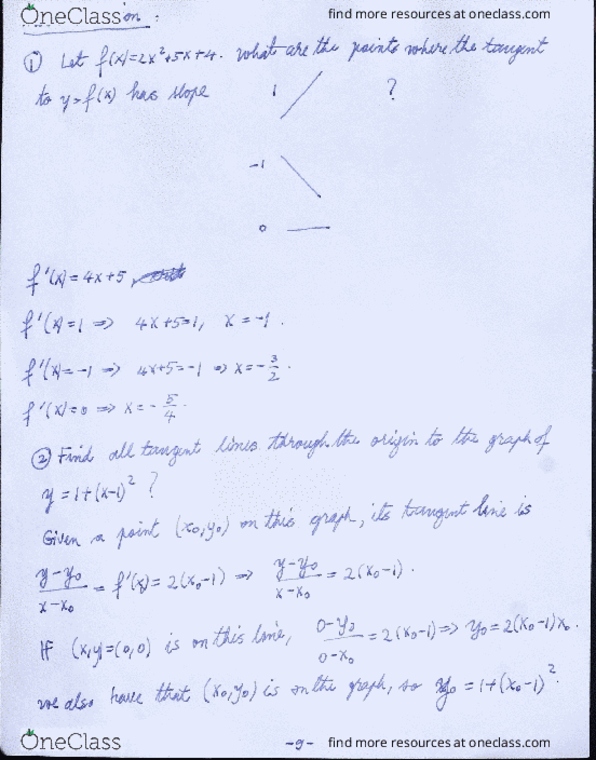 OneClass
find more resources at oneclass.com
on :
① Let f(x)=2x²+5x+4. What are the points where the tangent
to y=f(x) has slope 1 ?
-1
0
f'(x)=4x+5
f'(x)=1 => 4x+5=1, x=-1.
f'(x)=-1 => 4x+5=-1 => x=-3/2.
f'(x)=0 => x=-5/4.
② Find all tangent lines through the origin to the graph of
y=1+(x-1)² ?
Given a point (x₀,y₀) on this graph, its tangent line is
(y-y₀)/(x-x₀) = f'(x₀)=2(x₀-1) => (y-y₀)/(x-x₀) = 2(x₀-1).
If (x,y)=(0,0) is on this line, (0-y₀)/(0-x₀) = 2(x₀-1) => y₀=2(x₀-1)x₀.
we also have that (x₀,y₀) is on the graph, so y₀=1+(x₀-1)².
OneClass
-9-
find more resources at oneclass.com